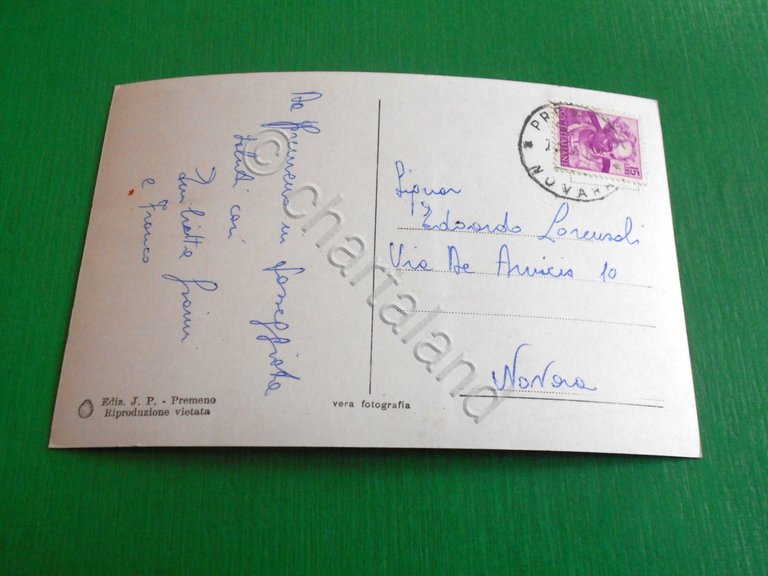 Da Premeno in passeggiata
saluti cari
Giulietta Gianni
e Franco
Signor
Edoardo Lorenzoli
Via De Amicis 10
Novara
Ediz. J. P. - Premeno
Riproduzione vietata
vera fotografia
NOVARA
POSTE ITALIANE
LIRE 15
© chartaland